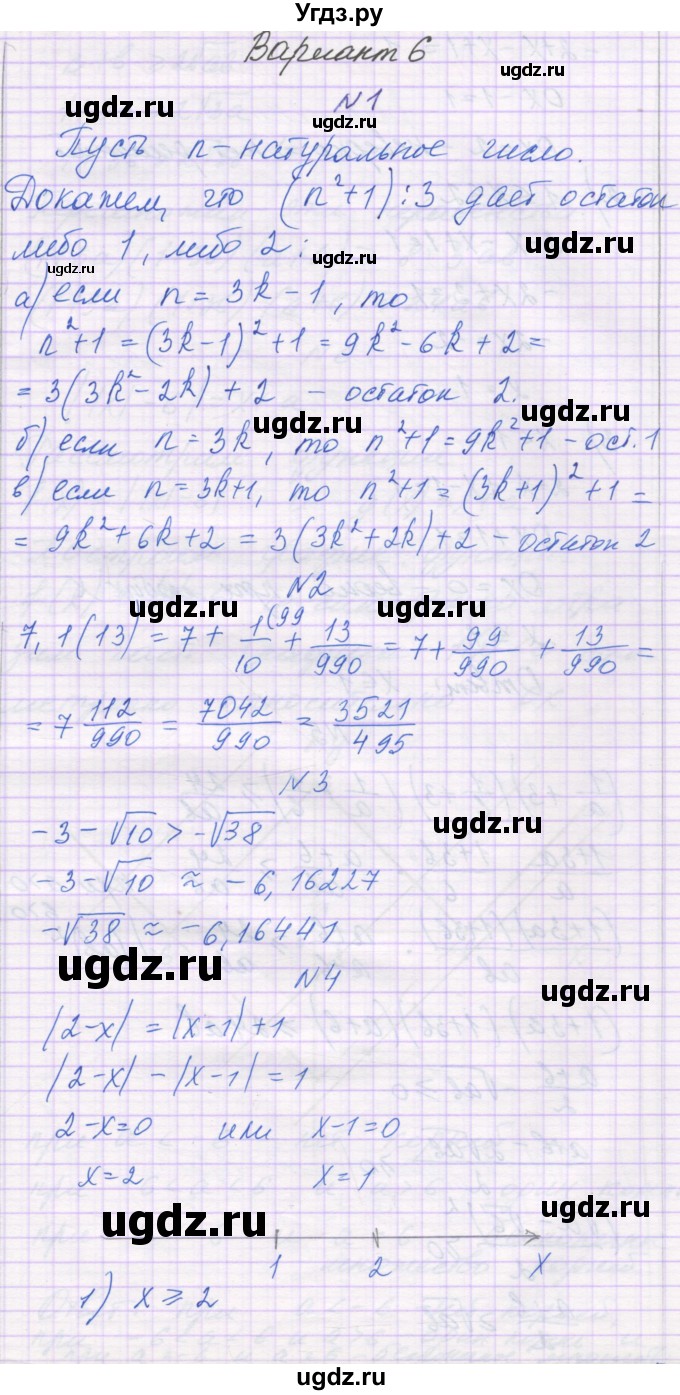 Угдз.ру
Вариант 6
ugdz.ru
№1
ugdz.ru ugdz.ru
Пусть n - натуральное число.
Докажем, что (n²+1):3 дает остаток
ugdz.ru ugdz.ru ugdz.ru
либо 1, либо 2:
а) если n = 3k - 1, то
n²+1 = (3k-1)²+1 = 9k²-6k+2 =
= 3(3k²-2k)+2 - остаток 2.
ugdz.ru ugdz.ru
б) если n = 3k, то n²+1 = 9k²+1 - ост. 1
в) если n = 3k+1, то n²+1 = (3k+1)²+1 =
= 9k²+6k+2 = 3(3k²+2k)+2 - остаток 2
№2
ugdz.ru ugdz.ru
7,1(13) = 7 + 1/10 (99 + 13/990 = 7 + 99/990 + 13/990 =
= 7 112/990 = 7042/990 = 3521/495
№3
-3-√10 > -√38
ugdz.ru
-3-√10 ≈ -6,16227
-√38 ≈ -6,16441
ugdz.ru
№4
ugdz.ru
|2-x| = |x-1|+1
|2-x| - |x-1| = 1
ugdz.ru
2-x=0 или x-1=0
x=2 x=1
ugdz.ru ugdz.ru
1 2 x
1) x ⩾ 2
ugdz.ru